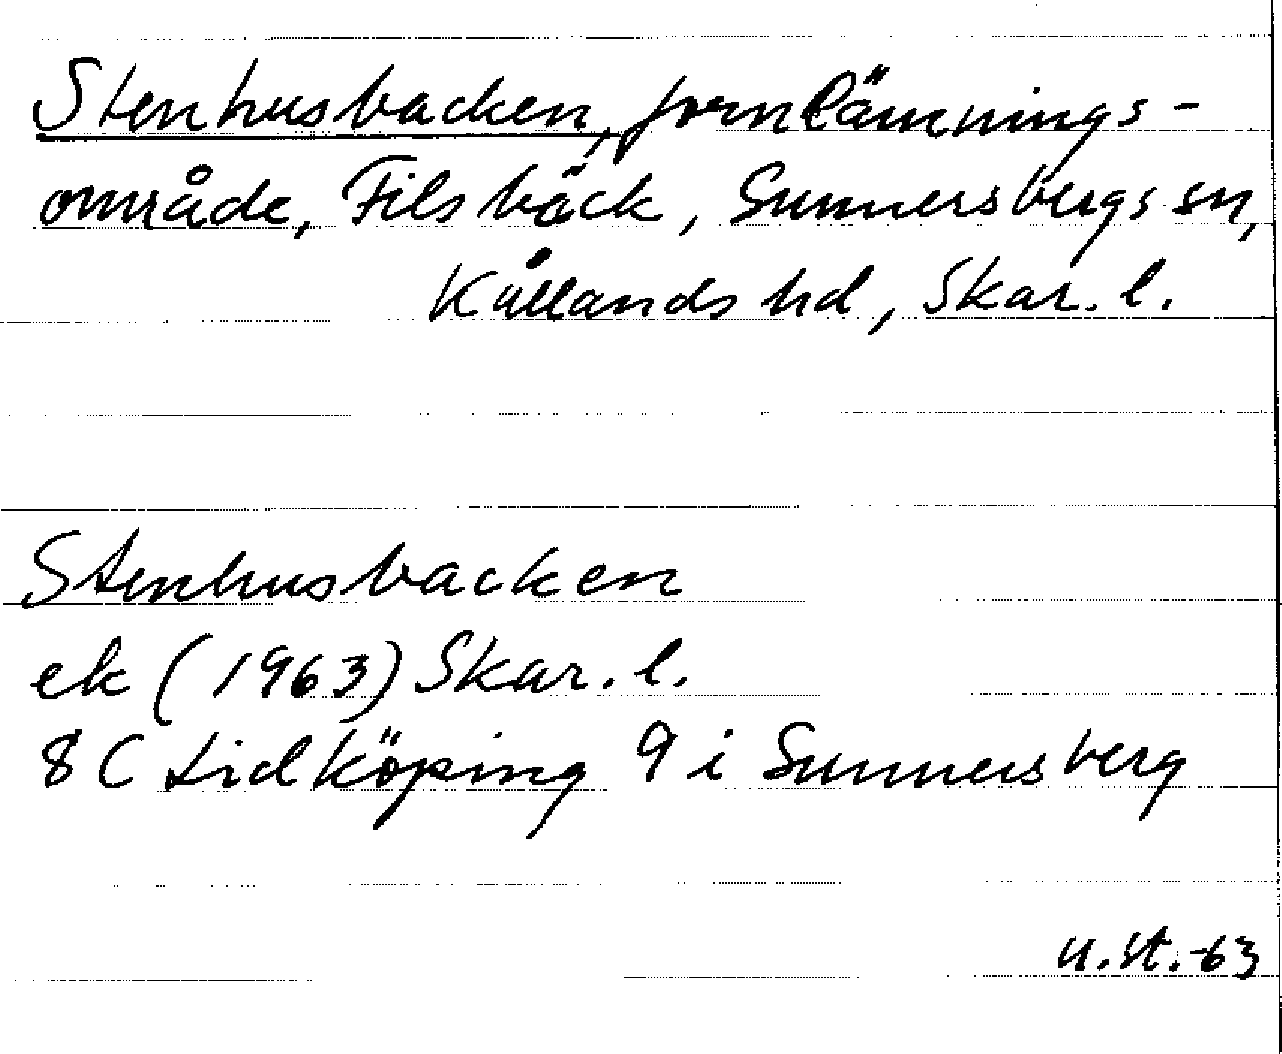 Stenhusbacken, fornlämnings-
område, Filsbäck, Sunnersbergs sn,
Kållands hd, Skar. l.
Stenhusbacken
ek (1963) Skar. l.
8 C Lidköping 9 i Sunnersberg
u.st.-63